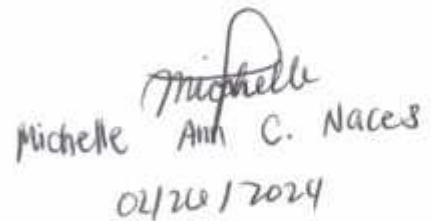 Michelle
Michelle Ann C. Naces
02/26/2024